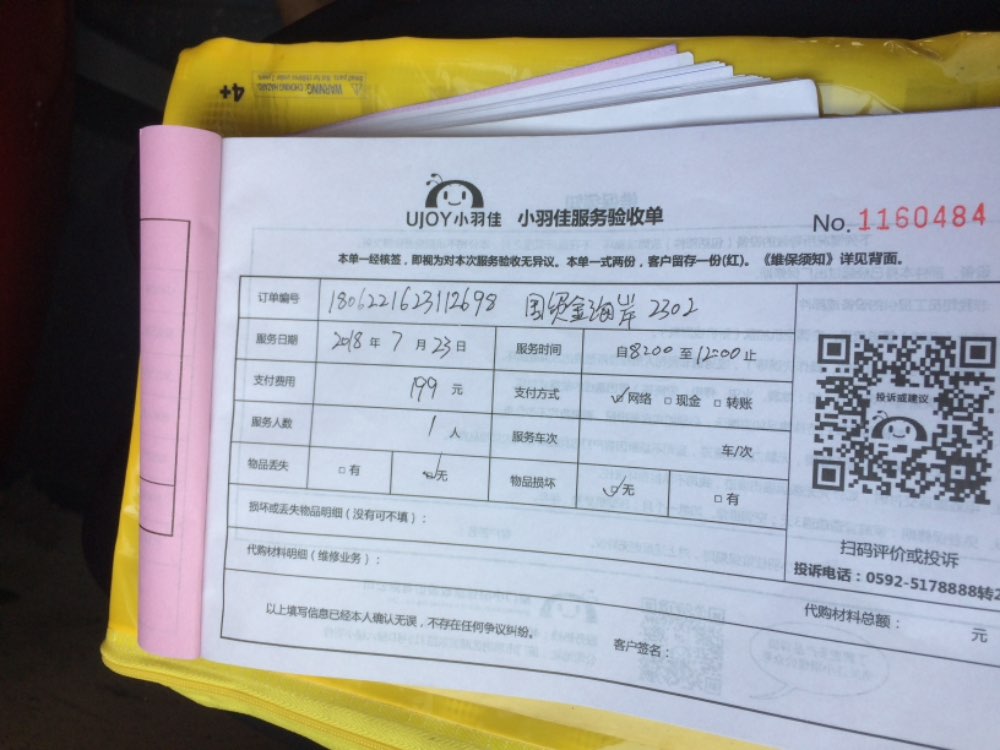 4+
WARNING: CHOKING HAZARD
UJOY小羽佳 小羽佳服务验收单
No. 1160484
本单一经核签，即视为对本次服务验收无异议。本单一式两份，客户留存一份(红)。《维保须知》详见背面。
订单编号 1806221623112698 国贸金海岸 2302
服务日期 2018 年 7 月 23 日 服务时间 自8:00 至 12:00 止
支付费用 199 元 支付方式 ☑网络 □现金 □转账
服务人数 1 人 服务车次 车/次
物品丢失 □有 ☑无 物品损坏 ☑无 □有
损坏或丢失物品明细（没有可不填）：
代购材料明细（维修业务）：
投诉或建议
扫码评价或投诉
投诉电话：0592-5178888转2
代购材料总额： 元
以上填写信息已经本人确认无误，不存在任何争议纠纷。 客户签名：